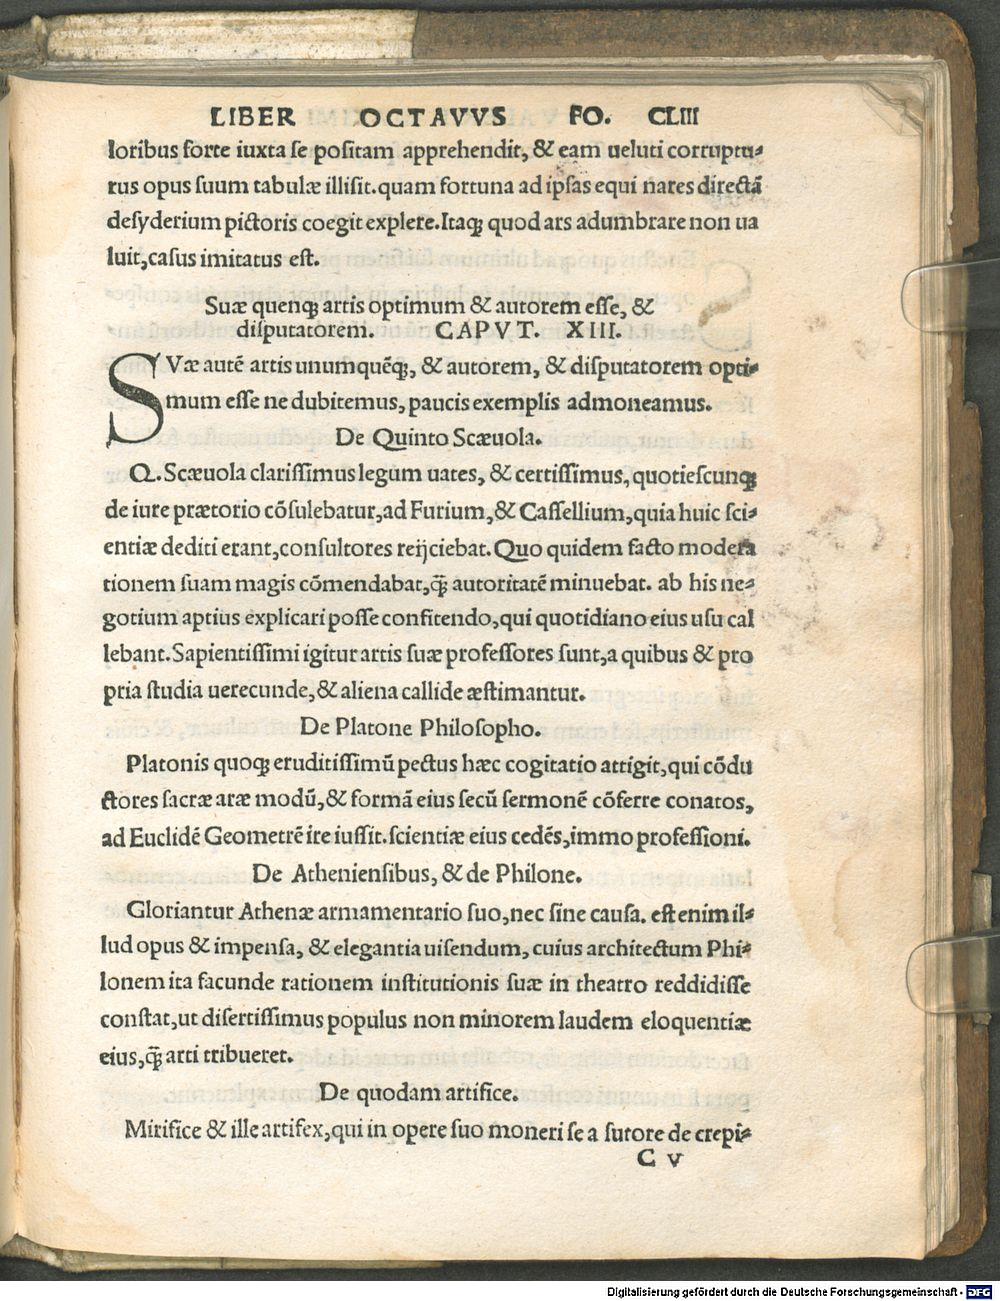 LIBER OCTAVVS FO. CLIII
loribus forte iuxta se positam apprehendit, & eam ueluti corruptu-
rus opus suum tabulæ illisit. quam fortuna ad ipsas equi nares directã
desyderium pictoris coegit explere. Itaqꝫ quod ars adumbrare non ua
luit, casus imitatus est.
Suæ quenqꝫ artis optimum & autorem esse, &
disputatorem. CAPVT. XIII.
SVæ autẽ artis unumquẽqꝫ, & autorem, & disputatorem opti-
mum esse ne dubitemus, paucis exemplis admoneamus.
De Quinto Scæuola.
Q. Scæuola clarissimus legum uates, & certissimus, quotiescunqꝫ
de iure prætorio cõsulebatur, ad Furium, & Cassellium, quia huic sci-
entiæ dediti erant, consultores reijciebat. Quo quidem facto modera
tionem suam magis cõmendabat, q̃ autoritatẽ minuebat. ab his ne-
gotium aptius explicari posse confitendo, qui quotidiano eius usu cal
lebant. Sapientissimi igitur artis suæ professores sunt, a quibus & pro
pria studia uerecunde, & aliena callide æstimantur.
De Platone Philosopho.
Platonis quoqꝫ eruditissimũ pectus hæc cogitatio attigit, qui cõdu
ctores sacræ aræ modũ, & formã eius secũ sermonẽ cõferre conatos,
ad Euclidẽ Geometrẽ ire iussit. scientiæ eius cedẽs, immo professioni.
De Atheniensibus, & de Philone.
Gloriantur Athenæ armamentario suo, nec sine causa. est enim il-
lud opus & impensa, & elegantia uisendum, cuius architectum Phi-
lonem ita facunde rationem institutionis suæ in theatro reddidisse
constat, ut disertissimus populus non minorem laudem eloquentiæ
eius, q̃ arti tribueret.
De quodam artifice.
Mirifice & ille artifex, qui in opere suo moneri se a sutore de crepi-
C v
Digitalisierung gefördert durch die Deutsche Forschungsgemeinschaft - DFG